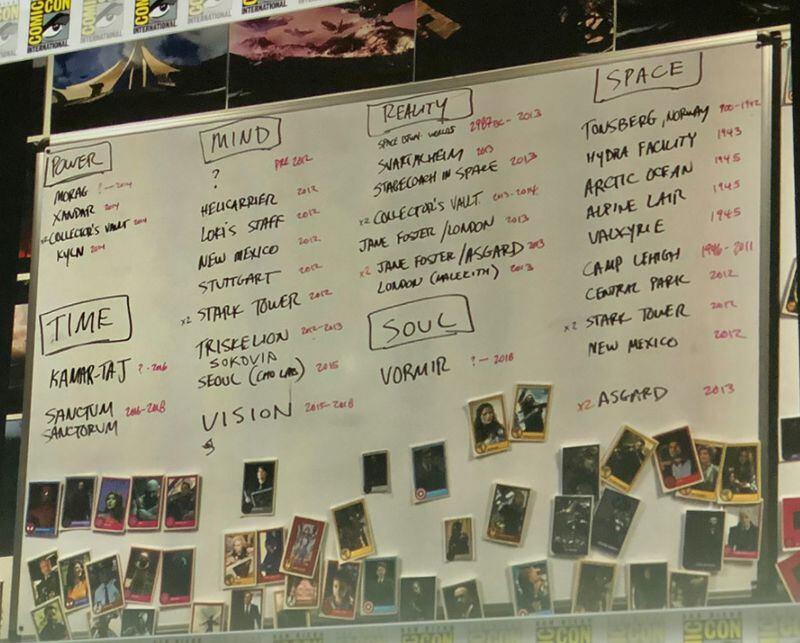 COMIC CON
INTERNATIONAL
COMIC CON
INTERNATIONAL
POWER
MORAG ? - 2014
XANDAR 2014
x2 COLLECTOR'S VAULT 2014
KYLN 2014
TIME
KAMAR-TAJ ? - 2016
SANCTUM 2016-2018
SANCTORUM
MIND
? PRE 2012
?
HELICARRIER 2012
LOKI'S STAFF 2012
NEW MEXICO 2012
STUTTGART 2012
x2 STARK TOWER 2012
TRISKELION 2012-2013
SOKOVIA
SEOUL (CHO LAB) 2015
VISION 2015-2018
REALITY
SPACE BTWN. WORLDS 2987BC - 2013
SVARTALHEIM 2013
STAGECOACH IN SPACE 2013
x2 COLLECTOR'S VAULT 2013-2014
JANE FOSTER/LONDON 2013
x2 JANE FOSTER/ASGARD 2013
LONDON (MALEKITH) 2013
SOUL
VORMIR ? - 2018
SPACE
TONSBERG, NORWAY 900-1942
HYDRA FACILITY 1943
ARCTIC OCEAN 1945
ALPINE LAIR 1945
VALKYRIE 1945
CAMP LEHIGH 1946-2011
CENTRAL PARK 2012
x2 STARK TOWER 2012
NEW MEXICO 2012
x2 ASGARD 2013
SAN DIEGO
COMIC CON